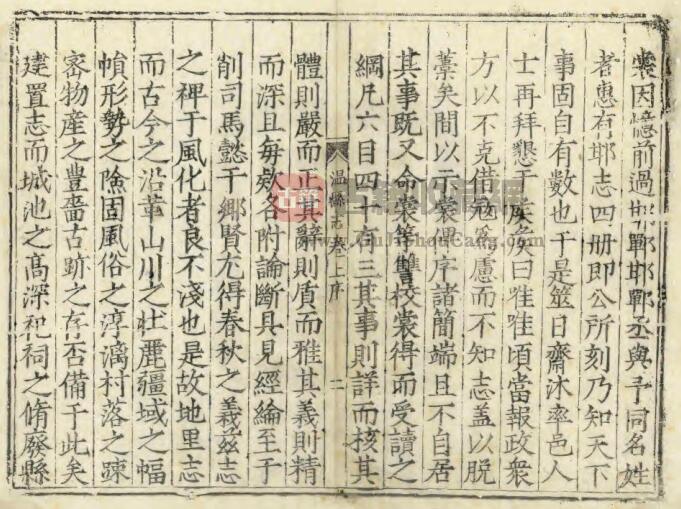 裳因憶前過邯鄲邯鄲丞與予同名姓
者惠有邯志四册即公所刻乃知天下
事固自有數也于是筮日齋沐率邑人
士再拜懇于侯侯曰唯唯頃當報政衆
方以不克借寇爲慮而不知志盖以脱
藁矣間以示裳俾序諸簡端且不自居
其事既又命裳等讎校裳得而受讀之
綱凡六目四十有三其事則詳而核其
温縣志卷上序 二
體則嚴而正其辭則質而雅其義則精
而深且每欵各附論斷具見經綸至于
削司馬懿于鄉賢尤得春秋之義兹志
之裨于風化者良不淺也是故地里志
而古今之沿革山川之壯麗疆域之幅
幀形勢之險固風俗之淳漓村落之踈
宻物産之豊嗇古跡之存否備于此矣
建置志而城池之高深祀祠之脩廢縣
古籍收藏网
www.GuJiShouCang.com